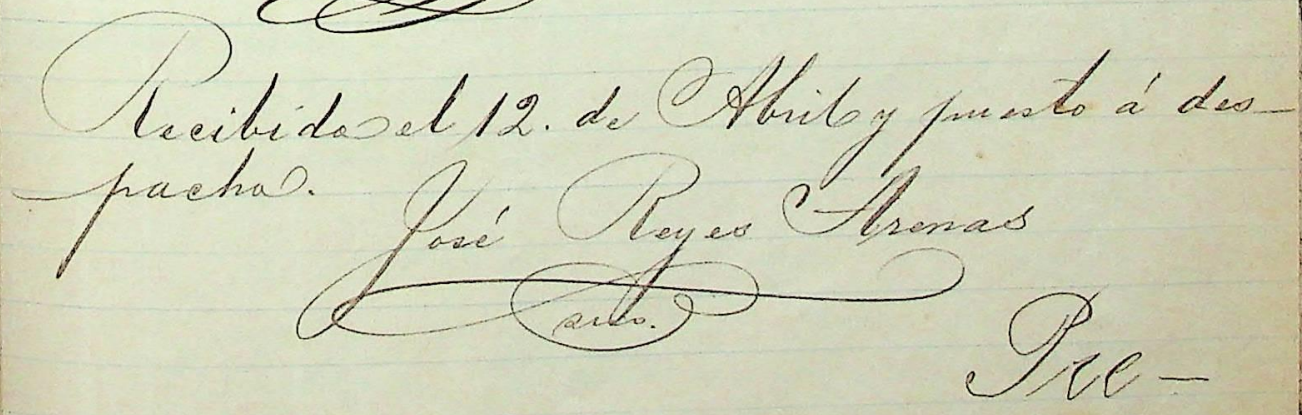 Recibido el 12. de Abril y puesto á des-
pacho.
José Reyes Arenas
srio.
Pre-